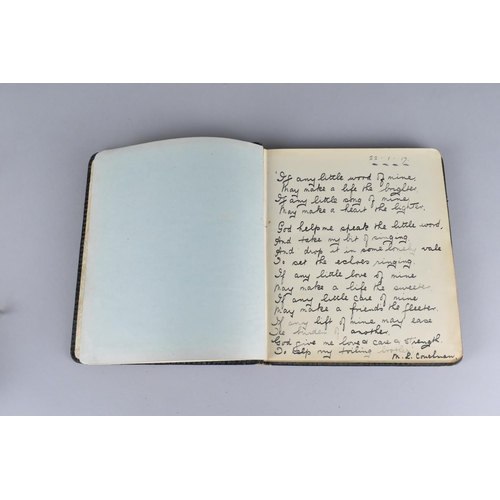 "If any little word of mine
May make a life the brighter
If any little song of mine
May make a heart the lighter,
God help me speak the little word,
And take my bit of singing
And drop it in some lonely vale
To set the echoes ringing.
If any little love of mine
May make a life the sweeter
If any little care of mine
May make a friends the fleeter
If any lift of mine may ease
The burden of another.
God give me love & care & strength.
To help my toiling